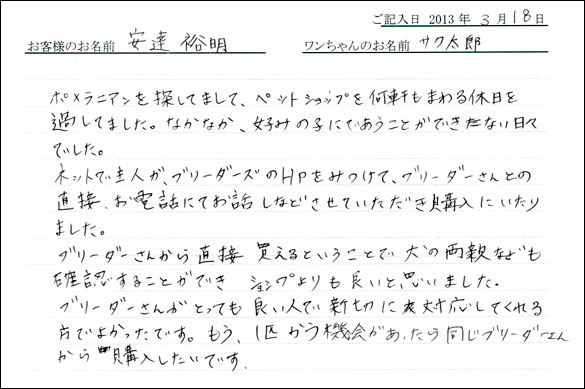 ご記入日 2013年 3月18日
お客様のお名前 安達 裕明 ワンちゃんのお名前 サク太郎
ポメラニアンを探してまして、ペットショップを何軒もまわる休日を
過してました。なかなか、好みの子にであうことができたない日々
でした。
ネットで主人が、ブリーダーズのHPをみつけて、ブリーダーさんとの
直接、お電話にてお話しなどさせていただき購入にいたり
ました。
ブリーダーさんから直接 買えるということで犬の両親なども
確認することができ ショップよりも良いと思いました。
ブリーダーさんがとっても良い人で新切に対応してくれる
方でよかったです。もう、1匹かう機会があったら同じブリーダーさん
から購入したいです。